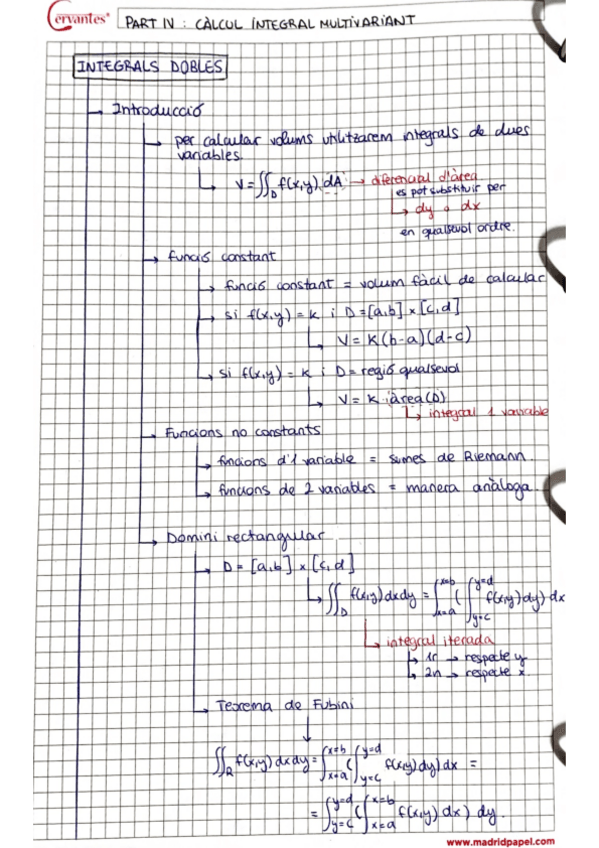 Cervantes®
PART IV : CÀLCUL INTEGRAL MULTIVARIANT
INTEGRALS DOBLES
→ Introducció
→ per calcular volums utilitzarem integrals de dues
variables.
V = ∬_D f(x,y) dA → diferencial d'àrea
es pot substituir per
→ dy o dx
en qualsevol ordre.
→ funció constant
→ funció constant = volum fàcil de calcular
→ si f(x,y) = K i D = [a,b] × [c,d]
V = K(b-a)(d-c)
→ si f(x,y) = K i D = regió qualsevol
→ V = K · àrea(D)
→ integral 1 variable
→ Funcions no constants
→ funcions d'1 variable = sumes de Riemann.
→ funcions de 2 variables = manera anàloga.
→ Domini rectangular
→ D = [a,b] × [c,d]
→ ∬_D f(x,y) dxdy = ∫_{x=a}^{x=b} ( ∫_{y=c}^{y=d} f(x,y) dy) dx
→ integral iterada
→ 1r → respecte y
→ 2n → respecte x.
→ Teorema de Fubini
↓
∬_R f(x,y) dxdy = ∫_{x=a}^{x=b} ( ∫_{y=c}^{y=d} f(x,y) dy) dx =
= ∫_{y=c}^{y=d} ( ∫_{x=a}^{x=b} f(x,y) dx ) dy.
www.madridpapel.com